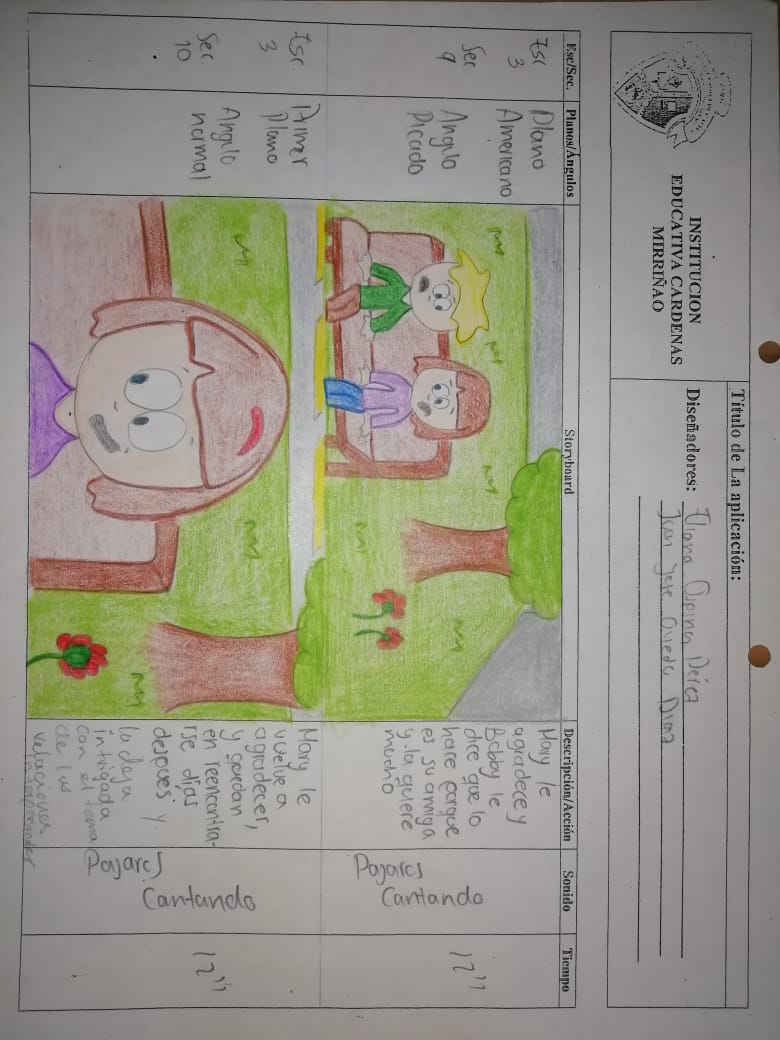 Título de La aplicación:
INSTITUCION
EDUCATIVA CARDENAS
MIRRIÑAO
Diseñadores: Eliana Ospina Pérez
Juan Jose Oviedo Diaz
Esc/Sec.
Planos/Ángulos
Storyboard
Descripción/Acción
Sonido
Tiempo
Esc
3
Sec
9
Plano
Americano
Angulo
Picado
Mary le
agradece y
Bobby le
dice que lo
hace porque
es su amiga
y la quiere
mucho
Pajaros
Cantando
12"
Esc.
3
Sec
10
Primer
Plano
Angulo
normal
Mary le
vuelve a
agradecer,
y quedan
en reencontra-
rse días
después y
la deja
intrigada
con el tema
de las
relaciones
interpersonales
Pajaros
Cantando
12"